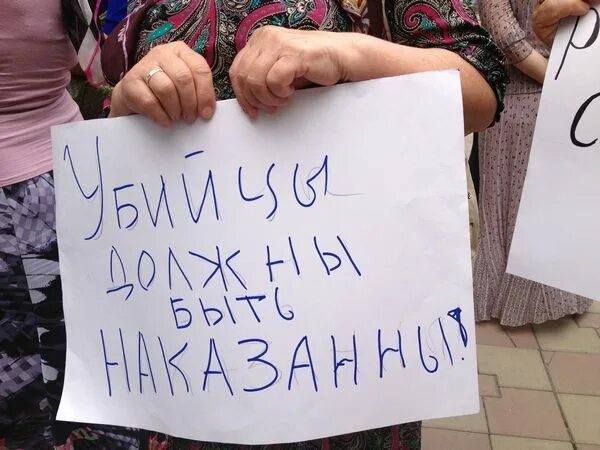 УБИЙЦЫ
ДОЛЖНЫ
БЫТЬ
НАКАЗАННЫ!